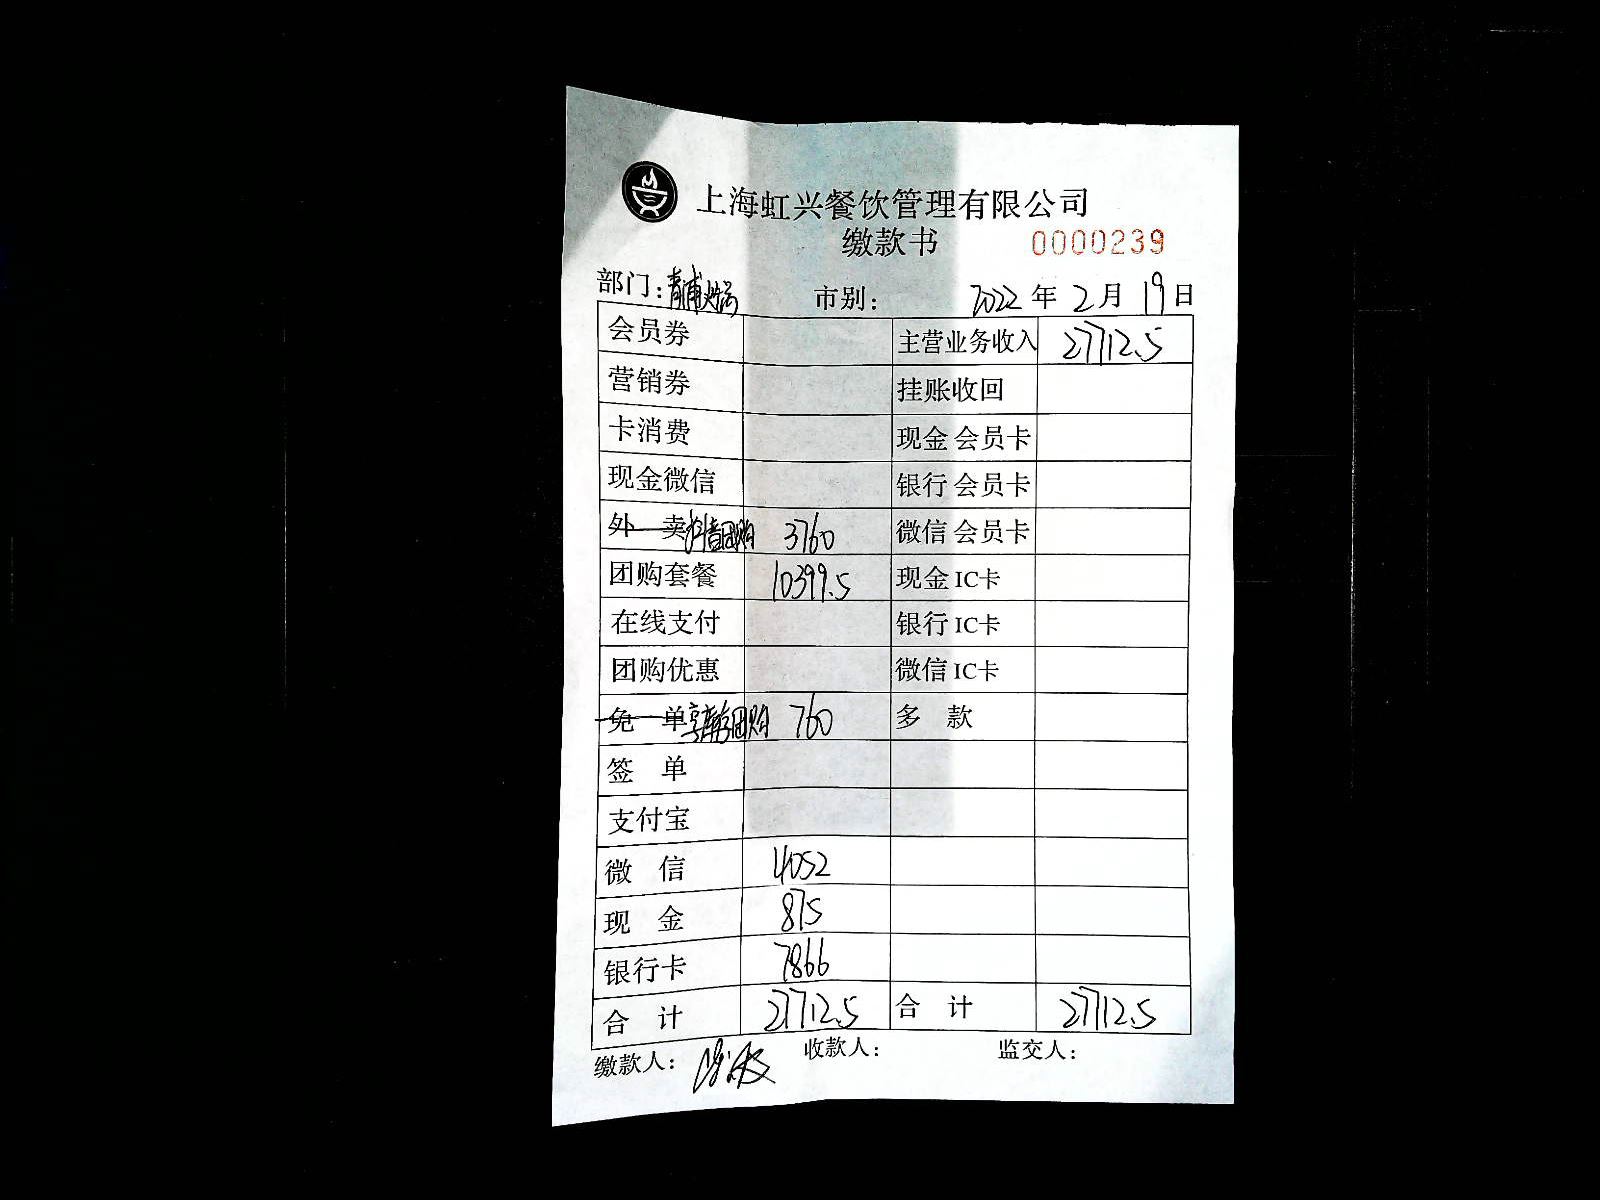 上海虹兴餐饮管理有限公司
缴款书 0000239
部门: 青浦 市别: 2022年2月19日
会员券 主营业务收入 27712.5
营销券 挂账收回
卡消费 现金会员卡
现金微信 银行会员卡
外卖 抖音团购 3760 微信会员卡
团购套餐 10399.5 现金IC卡
在线支付 银行IC卡
团购优惠 微信IC卡
免单 团购 760 多款
签单
支付宝
微信 4052
现金 875
银行卡 7866
合计 27712.5 合计 27712.5
缴款人: 收款人: 监交人: